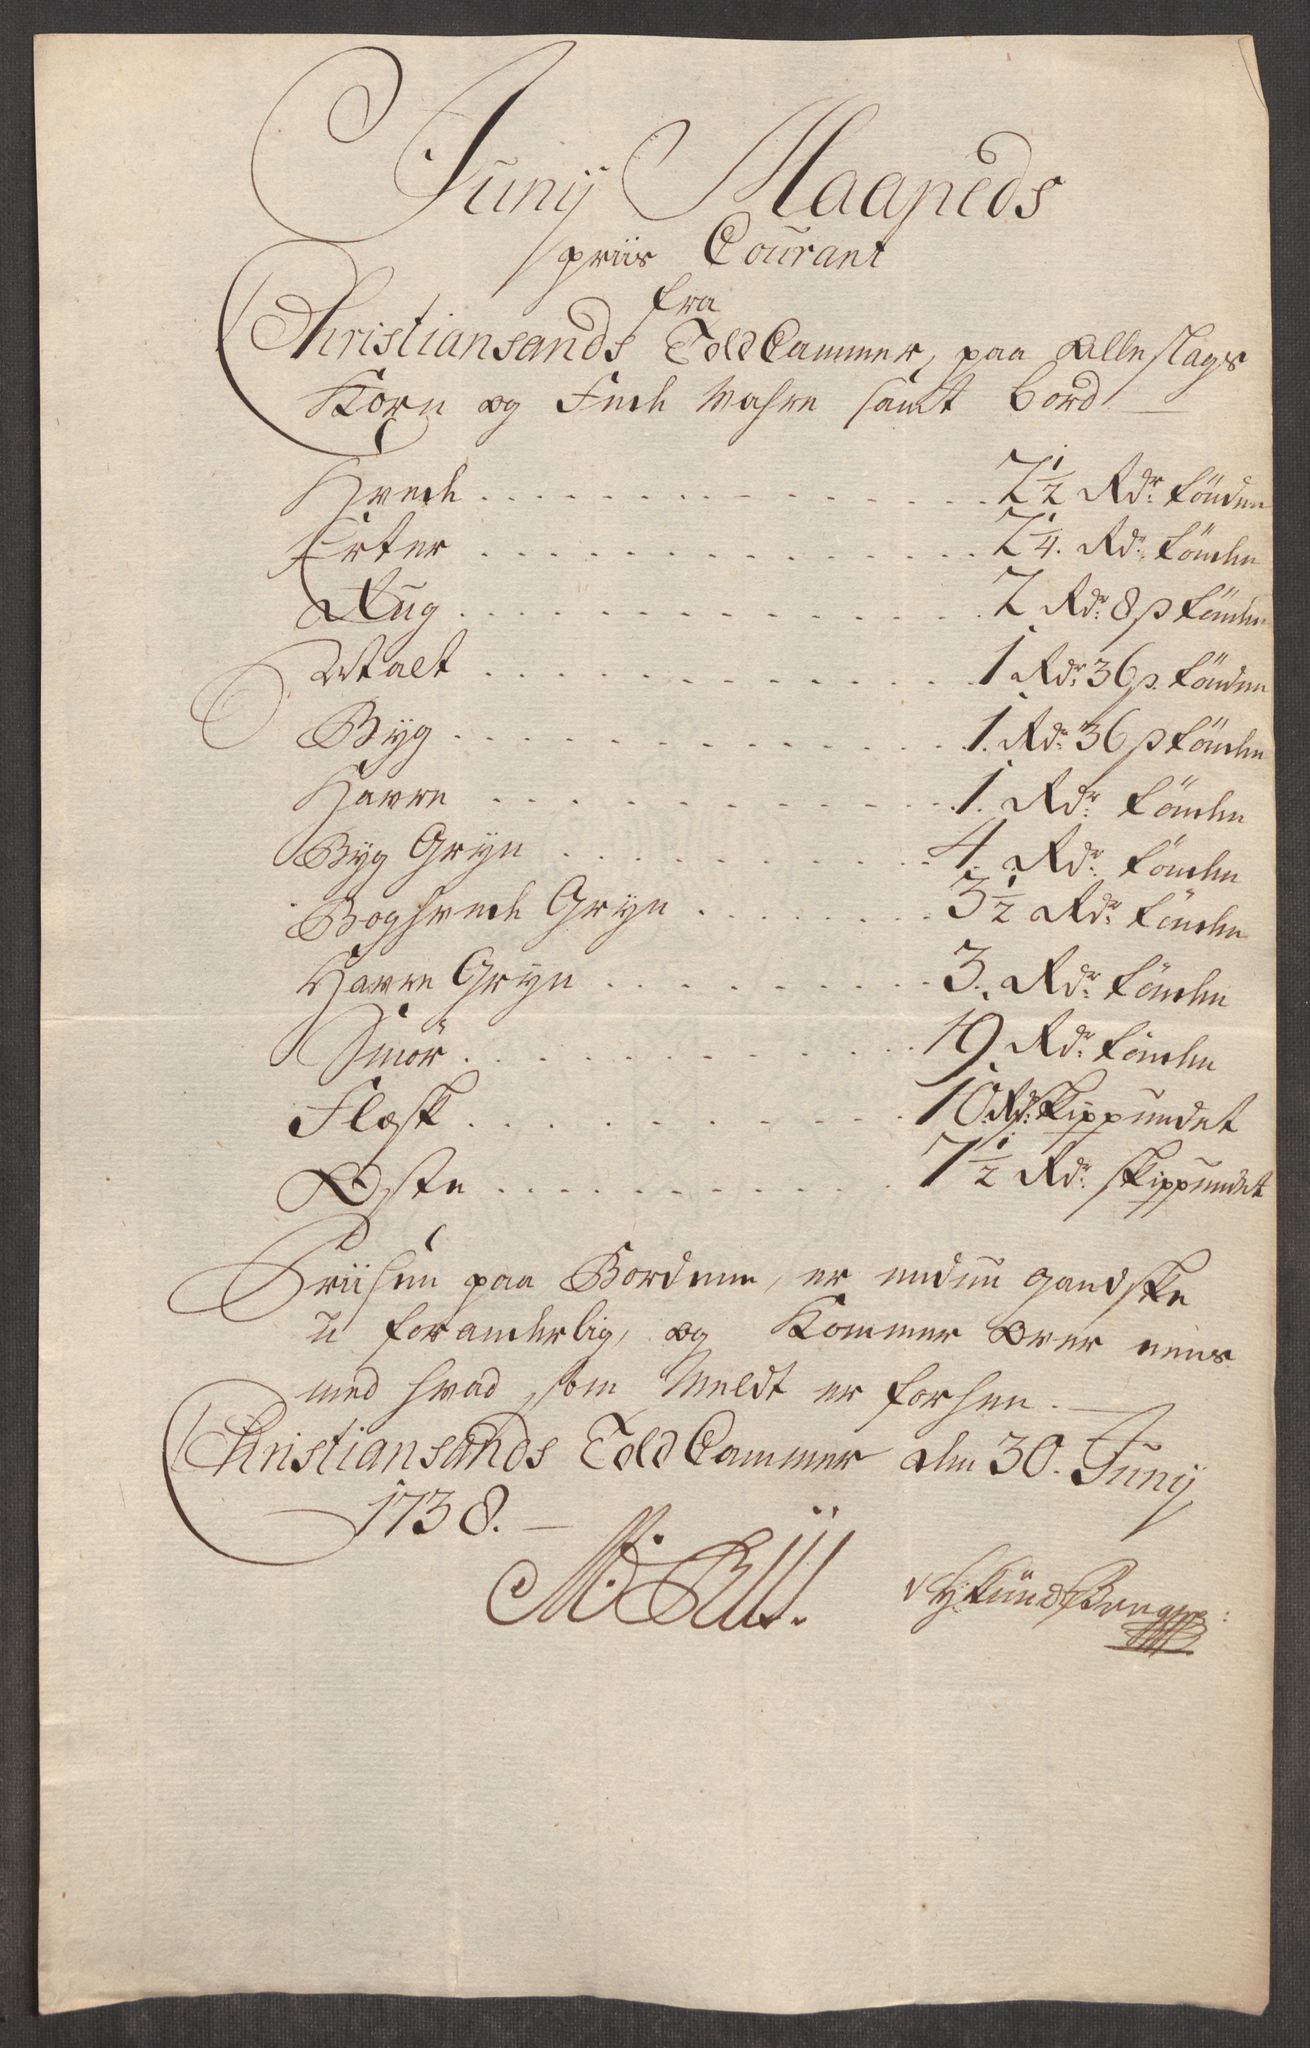 Junij Maaneds
priis Courant
fra
Christiansands Told Cammer, paa Alle slags
Korn og Fede Vahre samt bord
Hvede 2 1/2 Rdr Tönden
Erter 2 1/4. Rdr Tönden
Rug 2 Rdr 8 s Tönden
Malt 1 Rdr 36 s. Tönden
Byg 1. Rdr 36 s Tönden
Havre 1. Rdr Tönden
Byg Gryn 4. Rdr Tönden
Boghvede Gryn 3 1/2 Rdr Tönden
Havre Gryn 3. Rdr Tönden
Smör 19 Rdr Tönden
Flæsk 10. Rdr Skippundet
Oste 7 1/2 Rdr skippundet
Priisen paa Bordene, er endnu gandske
u foranderlig, og Kommer Over eens
med hvad som Meldt er forhen.
Christiansands Told Cammer den 30. Junij
1738.